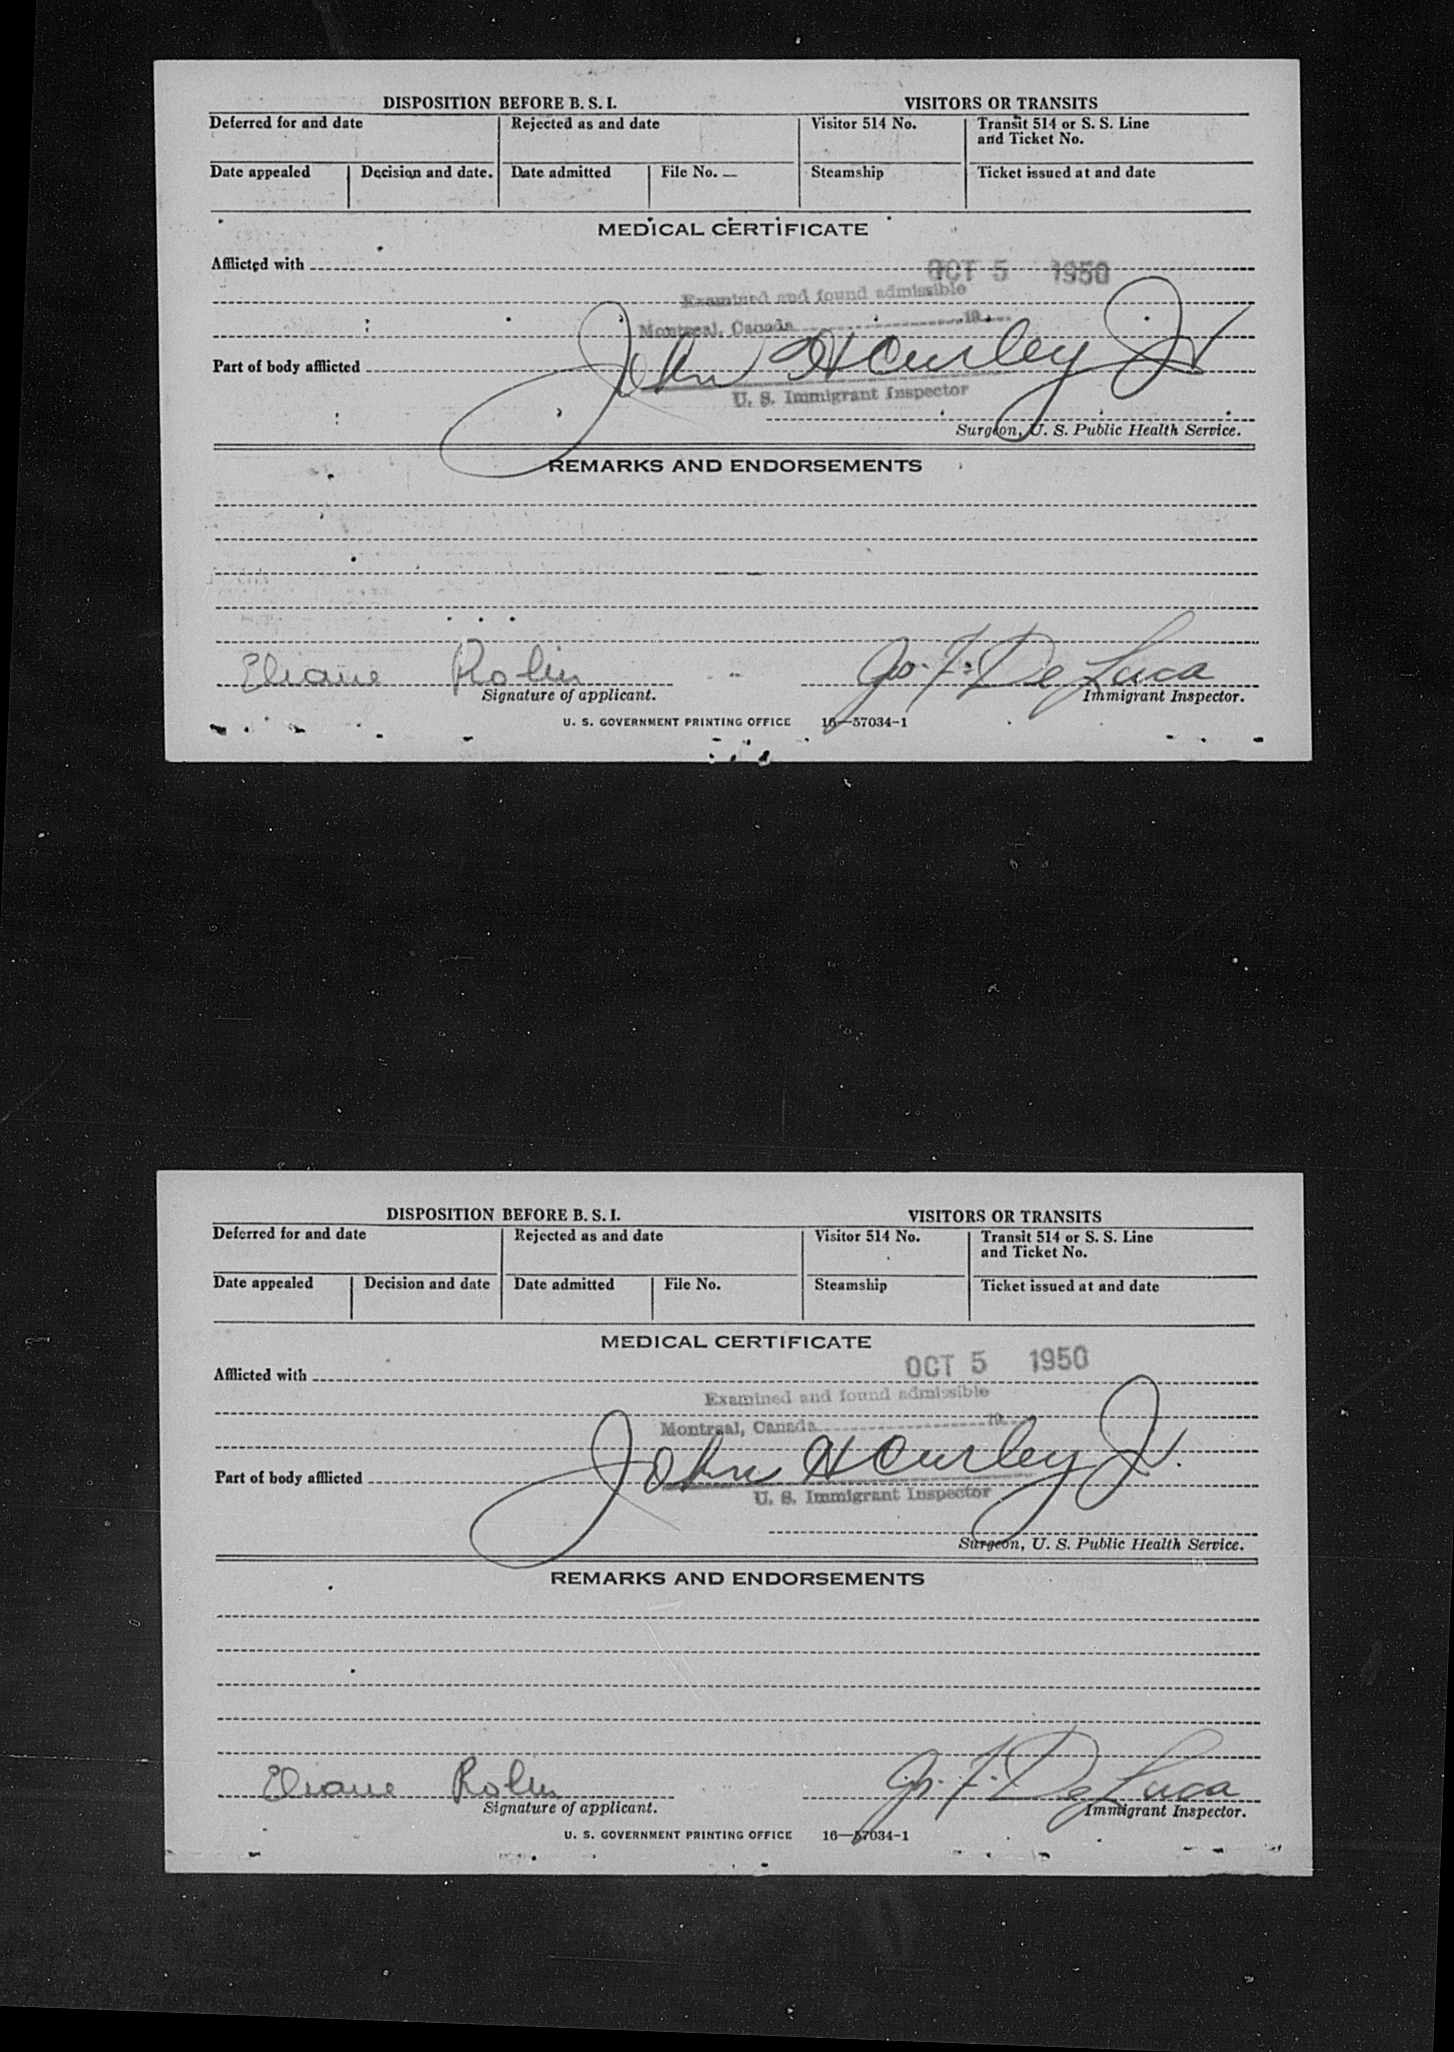 DISPOSITION BEFORE B. S. I. VISITORS OR TRANSITS
Deferred for and date Rejected as and date Visitor 514 No. Transit 514 or S. S. Line
and Ticket No.
Date appealed Decision and date. Date admitted File No. — Steamship Ticket issued at and date
MEDICAL CERTIFICATE
Afflicted with OCT 5 1950
Examined and found admissible
Montreal, Canada 19
John H Curley Jr
Part of body afflicted
U. S. Immigrant Inspector
Surgeon, U. S. Public Health Service.
REMARKS AND ENDORSEMENTS
Eliane Rolin Jo. F. De Luca
Signature of applicant. Immigrant Inspector.
U. S. GOVERNMENT PRINTING OFFICE 16—57034-1
DISPOSITION BEFORE B. S. I. VISITORS OR TRANSITS
Deferred for and date Rejected as and date Visitor 514 No. Transit 514 or S. S. Line
and Ticket No.
Date appealed Decision and date Date admitted File No. Steamship Ticket issued at and date
MEDICAL CERTIFICATE
Afflicted with OCT 5 1950
Examined and found admissible
Montreal, Canada 19
John H Curley Jr.
Part of body afflicted
U. S. Immigrant Inspector
Surgeon, U. S. Public Health Service.
REMARKS AND ENDORSEMENTS
Eliane Rolin Jo. F. De Luca
Signature of applicant. Immigrant Inspector.
U. S. GOVERNMENT PRINTING OFFICE 16—57034-1